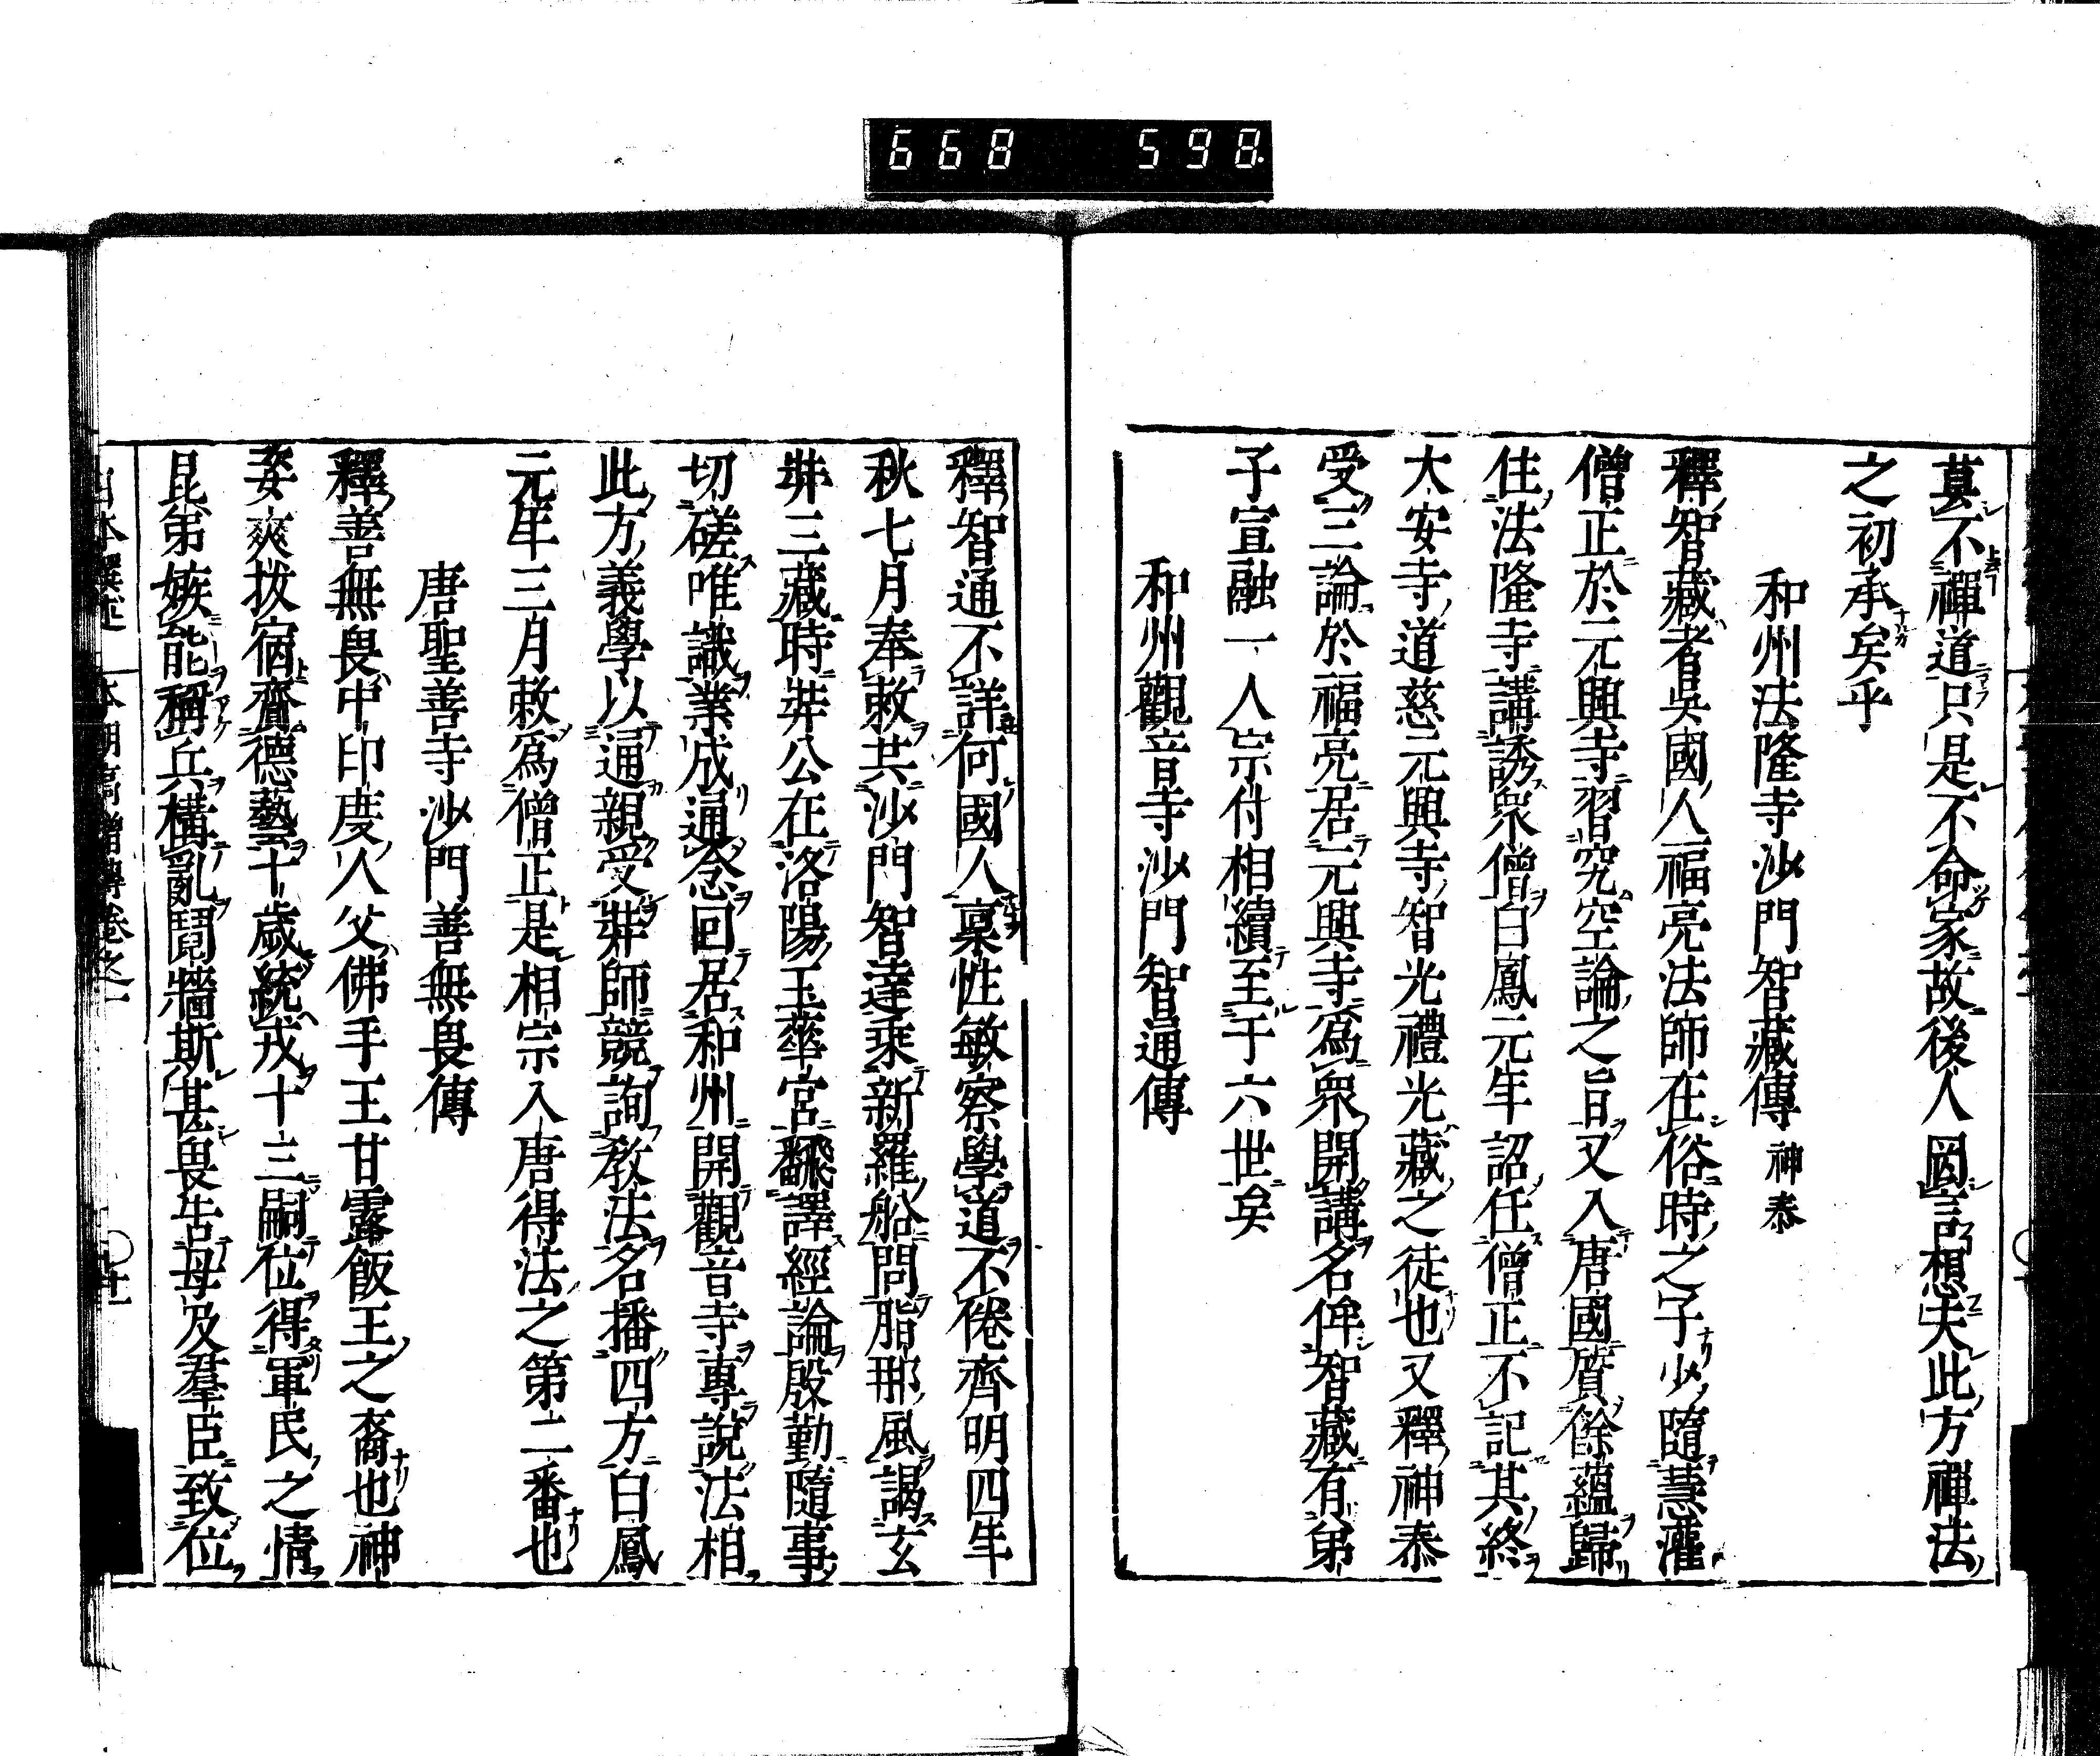 668 598
莫不禪道只是不命家故後人罔言想夫此方禪法
之初承矣乎
和州法隆寺沙門智藏傳 神泰
釋智藏者吳國人福亮法師在俗時之子少隨慧灌
僧正於元興寺習究空論之旨又入唐國質餘蘊歸
住法隆寺講誘衆僧白鳳元年詔任僧正不記其終
大安寺道慈元興寺智光禮光藏之徒也又釋神泰
受三論於福亮居元興寺爲衆開講名俾智藏有弟
子宣融一人宗付相續至于六世矣
和州觀音寺沙門智通傳
釋智通不詳何國人稟性敏察學道不倦齊明四年
秋七月奉敕共沙門智達乘新羅船問脂那風謁玄
奘三藏時奘公在洛陽玉華宮翻譯經論殷勤隨事
切磋唯識業成通念回居和州開觀音寺專說法相
此方義學以通親受奘師競詢教法名播四方白鳳
元年三月敕爲僧正是相宗入唐得法之第二番也
唐聖善寺沙門善無畏傳
釋善無畏中印度人父佛手王甘露飯王之裔也神
姿爽拔宿齎德藝十歲統戎十三嗣位得軍民之情
昆弟嫉能稱兵構亂鬩牆斯甚畏告母及羣臣致位
日本撰述 本朝高僧傳卷之一 ○十一